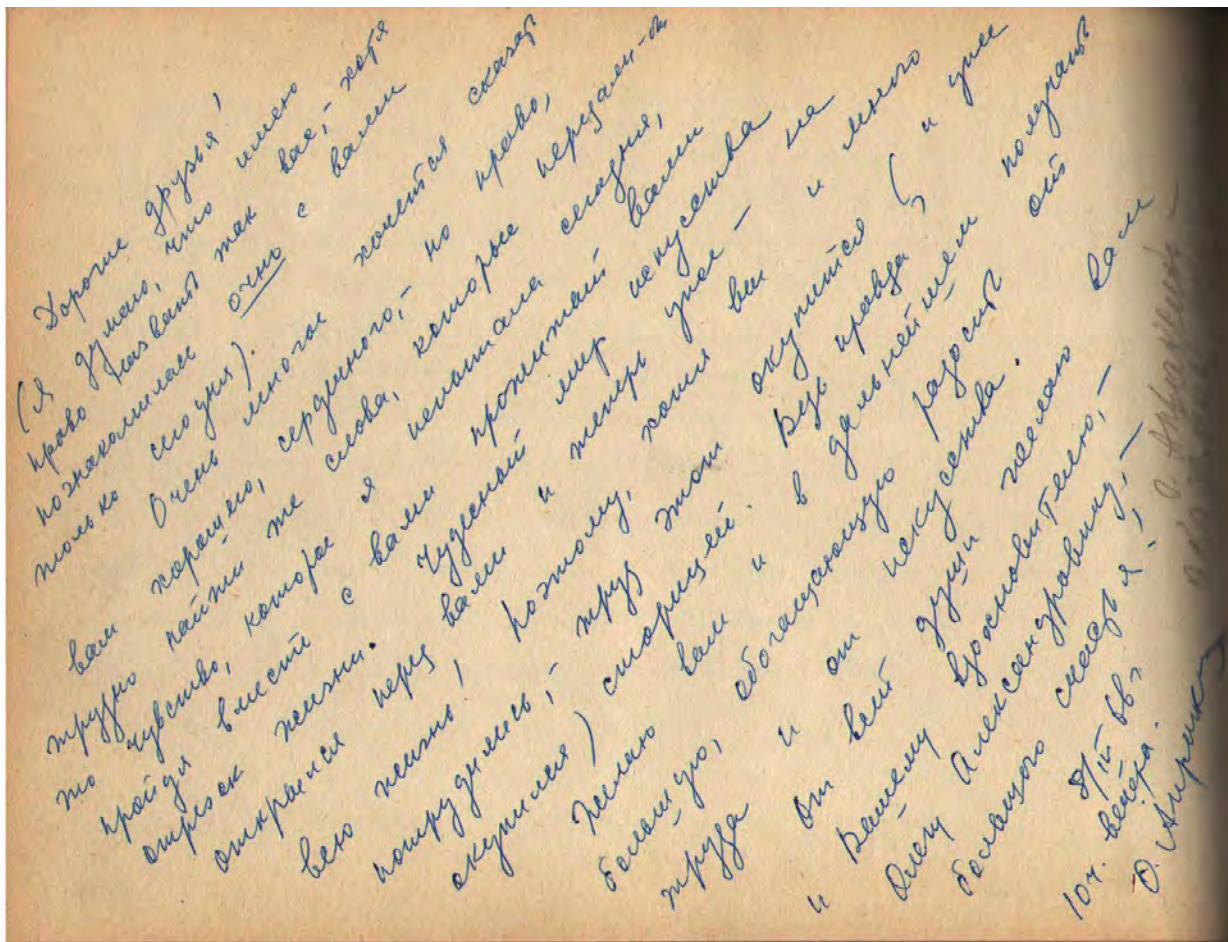 Хорошие друзья!
(Я думаю, что имею
право назвать так вас,- хотя
познакомилась очно с вами
только сегодня).
Очень многое хочется сказать
вам хорошего, сердечного,- но право,
трудно найти же слова, которые передали-бы
то чувство, которое я испытала сегодня,
пройдя вместе с вами прожитый вами
отрезок жизни. Чудесный мир искусства
открылся перед вами и теперь уже - на
всю жизнь! Поэтому, хотя вы и много
потрудились,- труд этот окупится (и уже
окупился) сторицей. Ведь правда?
Желаю вам и в дальнейшем получать
большую, обогащающую радость от
труда и от искусства.
От всей души желаю вам
и Вашему вдохновителю,-
Олегу Александровичу,-
большого счастья!
8/IV 66г
10 ч. вечера.